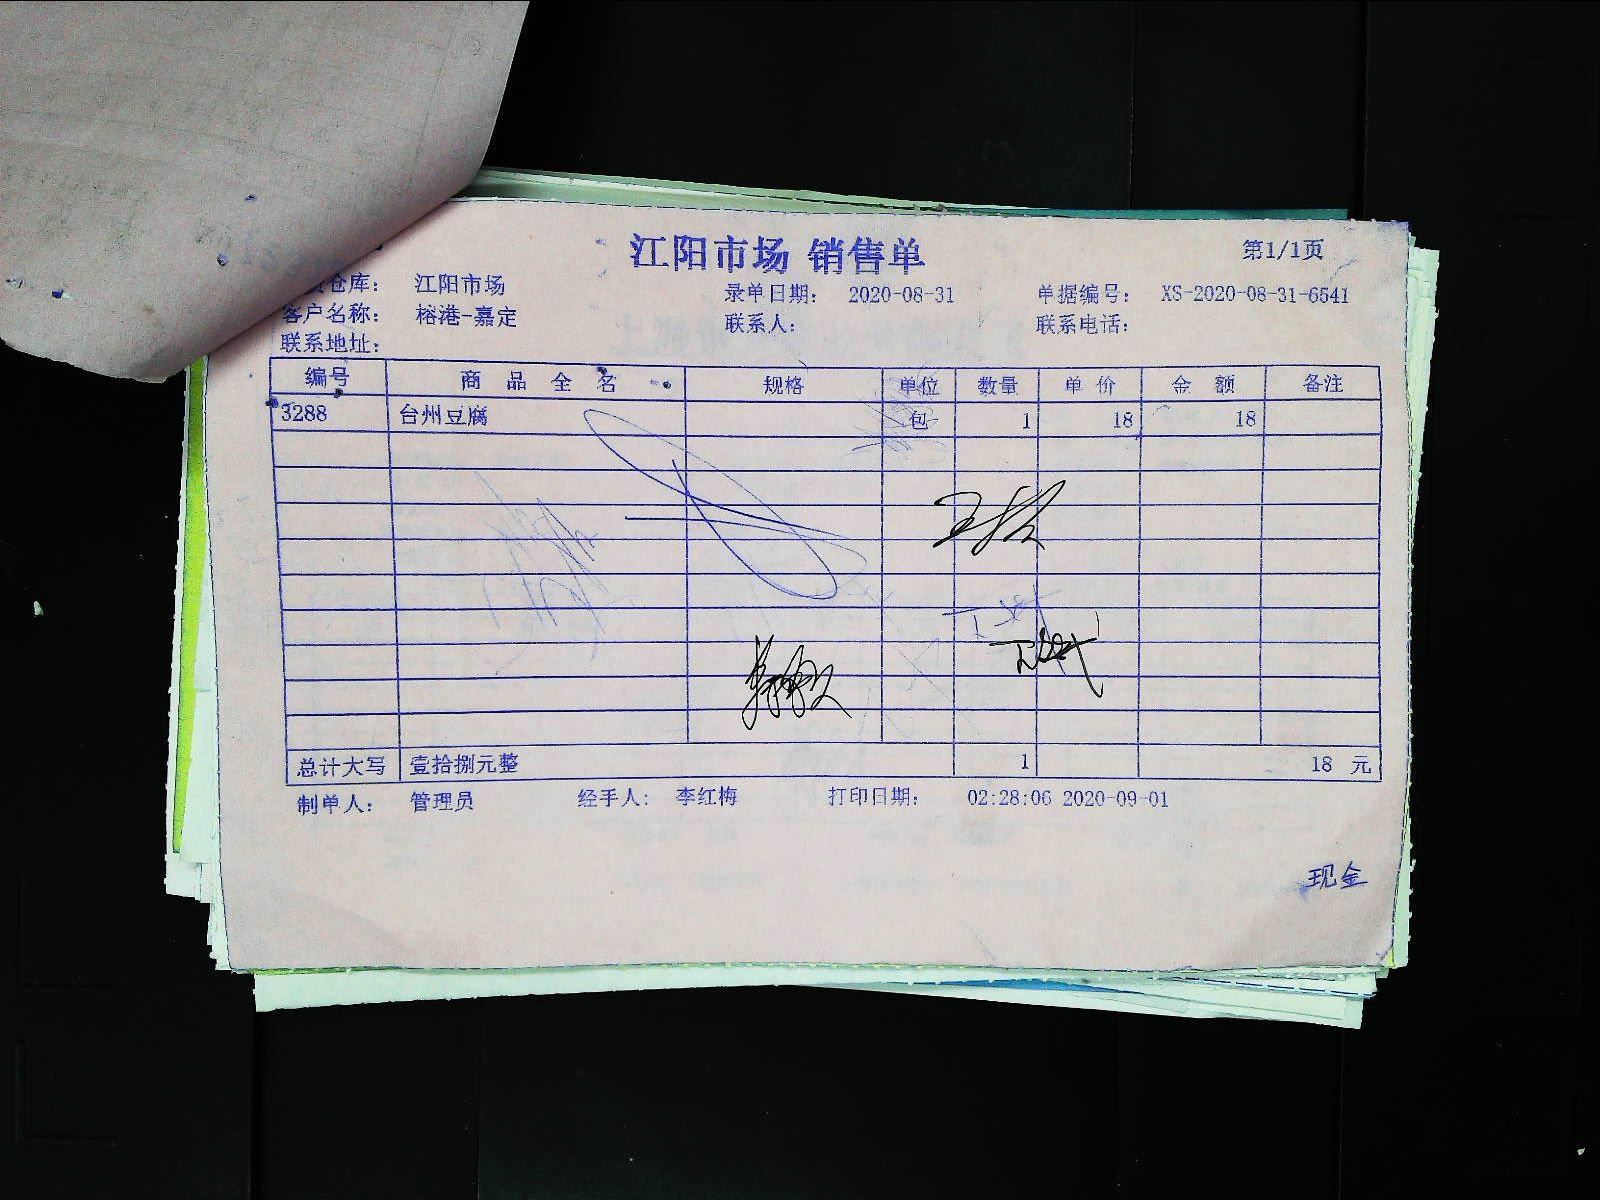 江阳市场 销售单
第1/1页
仓库： 江阳市场 录单日期： 2020-08-31 单据编号： XS-2020-08-31-6541
客户名称： 榕港-嘉定 联系人： 联系电话：
联系地址：
编号 商品全名 规格 单位 数量 单价 金额 备注
3288 台州豆腐 包 1 18 18
总计大写 壹拾捌元整 1 18 元
制单人： 管理员 经手人： 李红梅 打印日期： 02:28:06 2020-09-01
现金